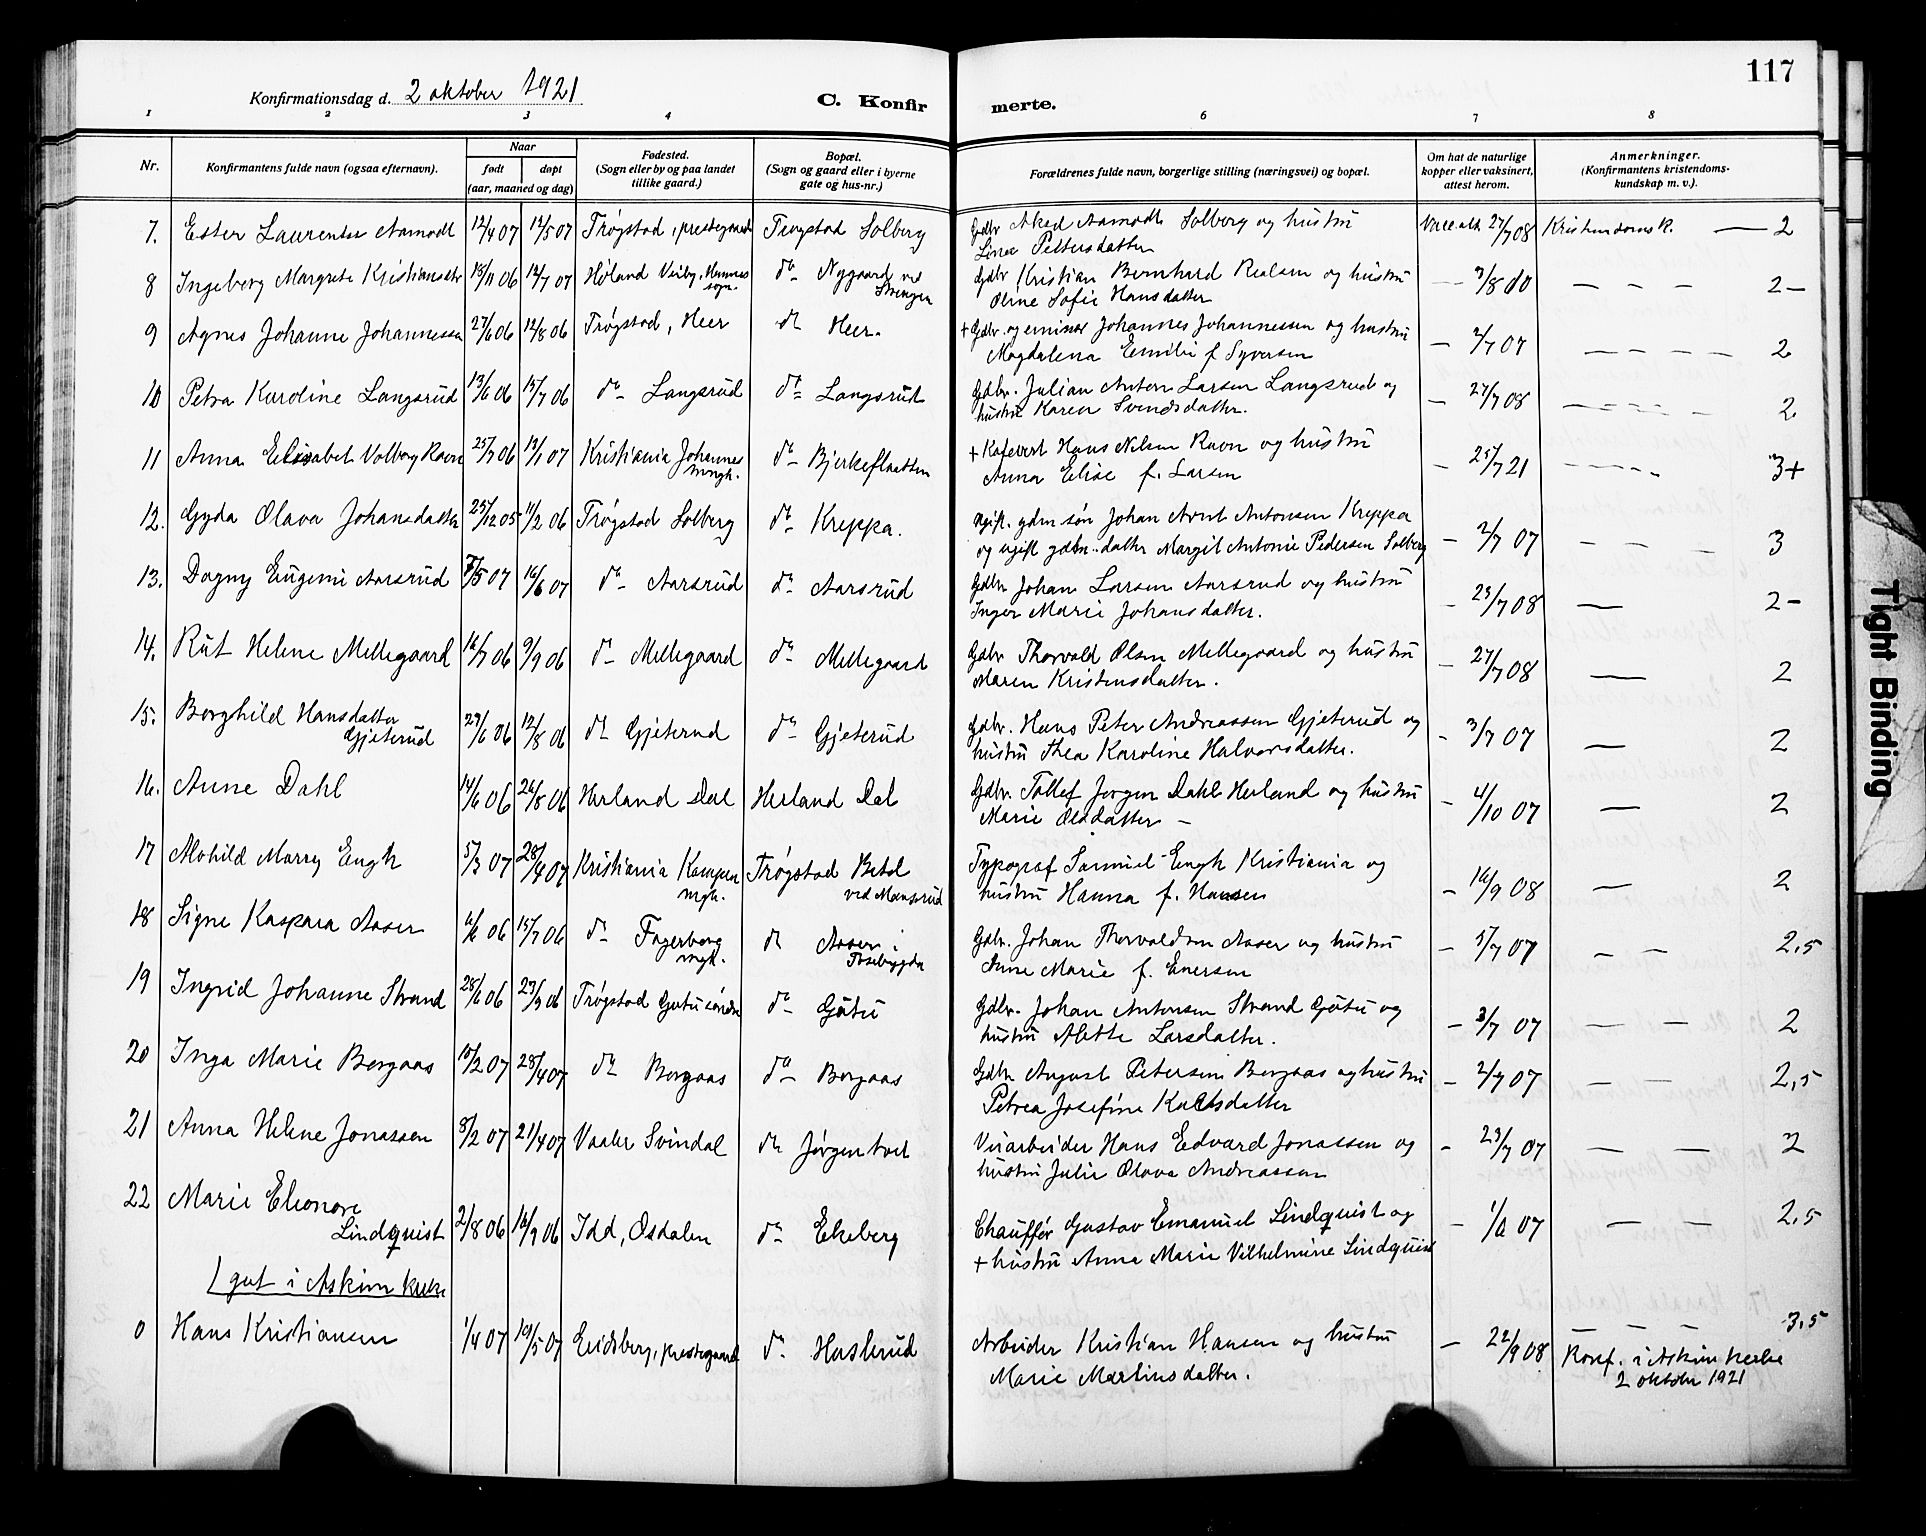 117
Konfirmationsdag d. 2 oktober 1921
C. Konfir
merte.
1 2 3 4 6 7 8
Nr.
Konfirmantens fulde navn (ogsaa efternavn).
Naar
født døpt
(aar, maaned og dag)
Fødested.
(Sogn eller by og paa landet
tillike gaard.)
Bopæl.
(Sogn og gaard eller i byerne
gate og hus-nr.)
Forældrenes fulde navn, borgerlige stilling (næringsvei) og bopæl.
Om hat de naturlige
kopper eller vaksinert,
attest herom.
Anmerkninger.
(Konfirmantens kristendoms-
kundskap m. v.).
7. Ester Laurentse Aamodt 12/4 07 12/5 07 Trøgstad, prestegaard Trøgstad Solberg Gdbr Aamodt Solberg og hustru 27/7 08 Kristendomsk. — 2
Pettersdatter
8 Ingeborg Margrete Kristiansdtr 13/11 06 14/7 07 Høland Hemnes do Nygaard ved Gdbr Kristian Bernhard og hustru — 3/8 — — — 2-
sogn.
Oline Sofie Hansdatter
9 Agnes Johanne Johannessen 27/6 06 12/8 06 Trøgstad, Heer do Heer. + Gdbr. og Johannes Johannessen og hustru — 2/7 07 — — — — 2
Magdalena Emilie f. Syversen
10 Petra Karoline Langsrud 13/6 06 15/7 06 do Langsrud do Langsrud Gdbr. Julian Anton Larsen Langsrud og — 27/7 08 — — — — 2
hustru Karen Svendsdatter.
11 Anna Elisabet Volborg Ravn 25/7 06 13/1 07 Kristiania Johannes do Bjerkeflaatten + Hans Nilsen Ravn og hustru — 25/7 21 — — — — 3+
mngh.
Anna Elise f. Larsen
12. Gyda Olava Johansdatter 25/12 05 11/2 06 Trøgstad Solberg do Kreppa. Ugift. gdm søn Johan Arnt Antonsen Kreppa — 2/7 07 — — — 3
og ugift gdbr. datter Margit Antonie Pedersen Solberg
13. Dagny Eugenie Aarsrud 7/5 07 16/6 07 do Aarsrud do Aarsrud Gdbr Johan Larsen Aarsrud og hustru — 23/7 08 — 2-
Inger Marie Johansdatter.
14. Rut Helene Mellegaard 16/7 06 9/9 06 do Mellegaard do Mellegaard Gdbr Thorvald Olsen Mellegaard og hustru — 27/7 08 — 2
Maren Kristensdatter.
15. Borghild Hansdatter
Gjeterud 29/6 06 12/8 06 do Gjeterud do Gjeterud Gdbr. Hans Peter Andreassen Gjeterud og — 3/7 07 — 2
hustru Thea Karoline Halvorsdatter.
16. Anne Dahl 14/6 06 26/8 06 Herland Dal Herland Dal Gdbr. Tollef Jørgen Dahl Herland og hustru — 4/10 07 — 2
Marie Olsdatter —
17 Alohild Marry Engh 5/3 07 28/4 07 Kristiania Kampen Trøgstad Betel Typograf Samuel Engh Kristiania og — 16/9 08 — 2
mngh. ved Mansrud
hustru Hanna f. Hansen
18 Signe Kaspara Aaser 6/6 06 15/7 06 do Fagerborg do Aaser i Gdbr. Johan Thorvaldsen Aaser og hustru — 5/7 07 — — 2,5
mngh. Tosebygden
Anne Marie f. Enersen
19 Ingrid Johanne Strand 28/6 06 23/9 06 Trøgstad Gutu søndre do Gutu Gdbr. Johan Antonsen Strand Gutu og — 3/7 07 — — 2
hustru Alette Larsdatter.
20 Inga Marie Bergaas 10/2 07 28/4 07 do Bergaas do Bergaas Gdbr August Petersen Bergaas og hustru — 2/7 07 — — 2,5
Petrea Josefine Karlsdatter
21 Anna Helene Jonassen 8/2 07 21/4 07 Vaaler Svindal do Jørgentvet Veiarbeider Hans Edvard Jonassen og — 23/7 07 — — 2
hustru Julie Olava Andreassen
22 Marie Eleonore
Lindquist 2/8 06 16/9 06 Idd, Osdalen do Ekeberg Chauffør Gustav Emanuel Lindquist og — 1/6 07 — — 2,5
+ hustru Anna Marie Vilhelmine Lindquist
1 gut i Askim kirke
0 Hans Kristiansen 1/4 07 10/5 07 Eidsberg, prestegaard do Haslerud Arbeider Kristian Hansen og hustru — 22/9 08 — — — 3,5
Marie Martinsdatter.
Konf. i Askim kirke
2 oktober 1921
Tight Binding